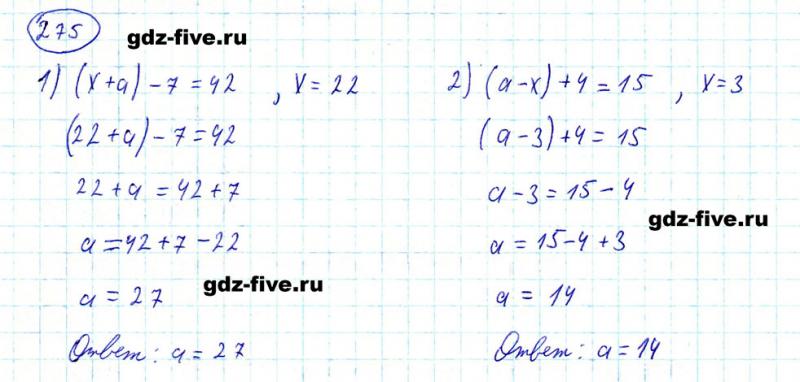 275
gdz-five.ru
1) (x+a) - 7 = 42 , x = 22
(22+a) - 7 = 42
22 + a = 42 + 7
a = 42 + 7 - 22
gdz-five.ru
a = 27
Ответ: a = 27
2) (a-x) + 4 = 15 , x = 3
(a-3) + 4 = 15
a - 3 = 15 - 4
gdz-five.ru
a = 15 - 4 + 3
a = 14
Ответ: a = 14